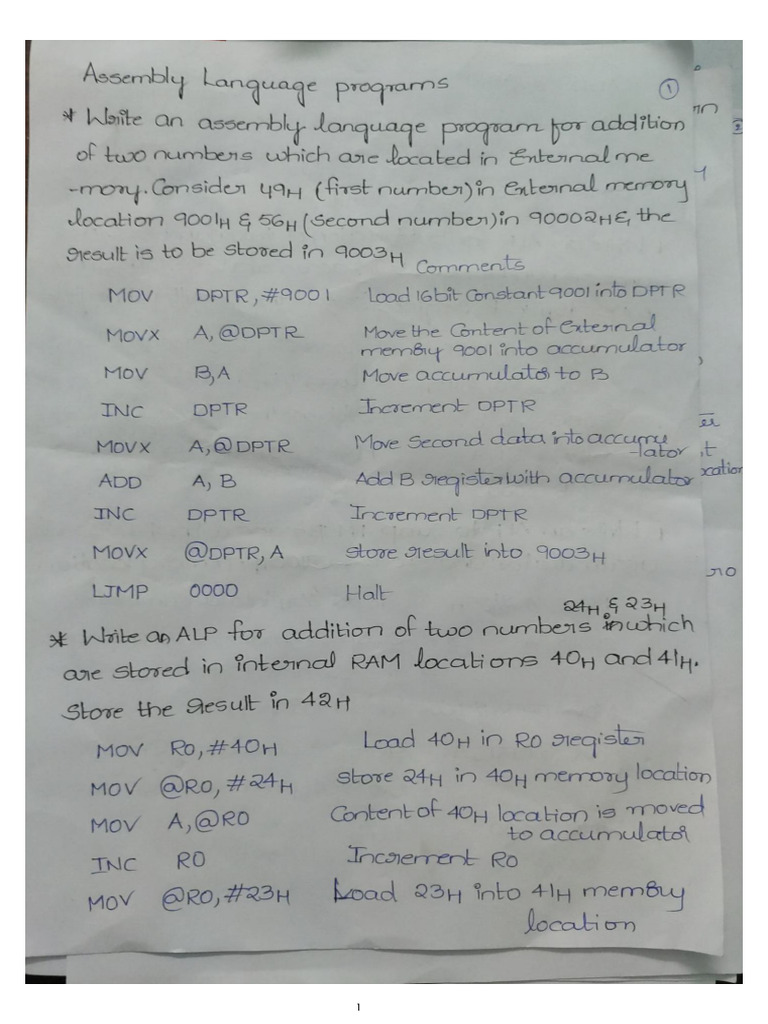 Assembly Language programs
1
* Write an assembly language program for addition
of two numbers which are located in External me
-mory. Consider 49H (first number) in External memory
location 9001H & 56H (second number) in 90002H &, the
result is to be stored in 9003H
Comments
MOV DPTR, #9001 Load 16bit Constant 9001 into DPTR
MOVX A, @DPTR Move the Content of External
memory 9001 into accumulator
MOV B,A Move accumulator to B
INC DPTR Increment DPTR
MOVX A, @DPTR Move Second data into accumu
-lator
ADD A, B Add B register with accumulator
INC DPTR Increment DPTR
MOVX @DPTR, A Store result into 9003H
LJMP 0000 Halt
24H & 23H
* Write an ALP for addition of two numbers in which
are stored in internal RAM locations 40H and 41H.
Store the result in 42H
MOV R0, #40H Load 40H in R0 register
MOV @R0, #24H Store 24H in 40H memory location
MOV A, @R0 Content of 40H location is moved
to accumulator
INC R0 Increment R0
MOV @R0, #23H Load 23H into 41H memory
location
1